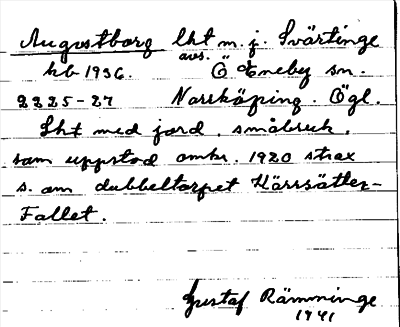 Augustborg lht m. j. Svärtinge
avs.
hb 1936. Ö Eneby sn.
2225-27 Norrköping. Ögl.
Lht med jord, småbruk,
som uppstod omkr. 1920 strax
s. om dubbeltorpet Kärrsätter-
Fallet.
Gustaf Rämminge
1941